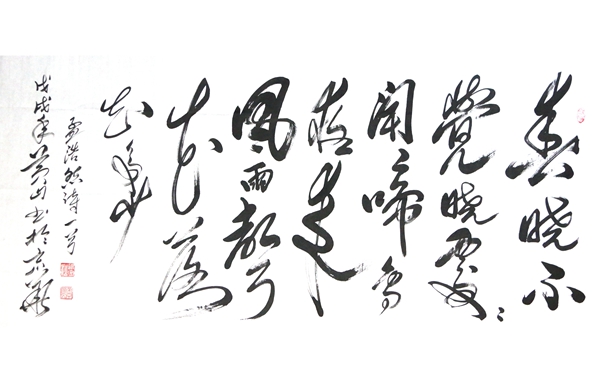 春晓不
覺晓處々
聞啼鸟
夜来
風雨聲
花落
知多少
孟浩然詩一首
戊戌年書於京華